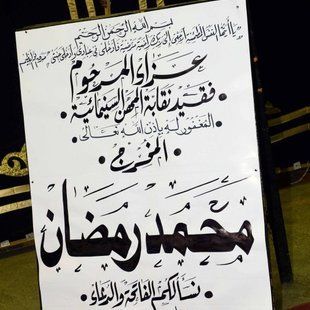 بسم الله الرحمن الرحيم
"يا أيتها النفس المطمئنة ارجعي إلى ربك راضية مرضية فادخلي في عبادي وادخلي جنتي" صدق الله العظيم
عزاء المرحوم
فقيد نقابة المهن السينمائية
المغفور له بإذن الله تعالى
• المخرج •
محمد رمضان
• نسألكم الفاتحة والدعاء •